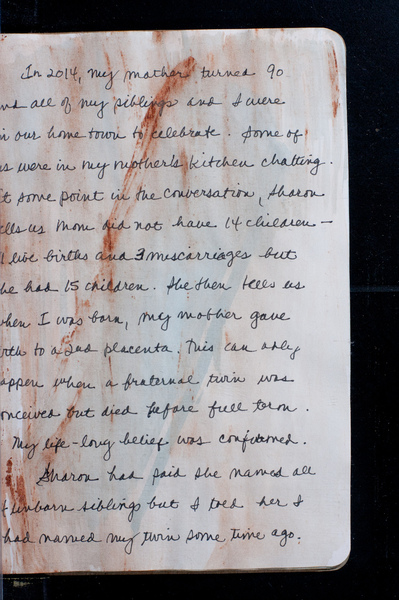 In 2014, my mother turned 90
nd all of my siblings and I were
n our home town to celebrate. Some of
s were in my mother's kitchen chatting.
t some point in the conversation, Sharon
ells us Mom did not have 14 children –
1 live births and 3 miscarriages but
he had 15 children. She then tells us
when I was born, my mother gave
rth to a 2nd placenta. This can only
appen when a fraternal twin was
onceived but died before full term.
My life-long belief was confirmed.
Sharon had said she named all
unborn siblings but I told her I
had named my twin some time ago.